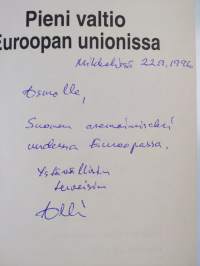 Pieni valtio
Euroopan unionissa
Mikkelissä 22.11.1996
Osmolle,
Suomen asemoimiseksi
uudessa Euroopassa.
Ystävällisin
terveisin
Olli